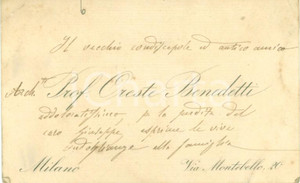 Il vecchio condiscepolo ed antico amico
Arch.to Prof. Oreste Benedetti
addoloratissimo, p la perdita del
caro Giuseppe esprime le vive
condoglianze alla famiglia
Milano Via Montebello, 20